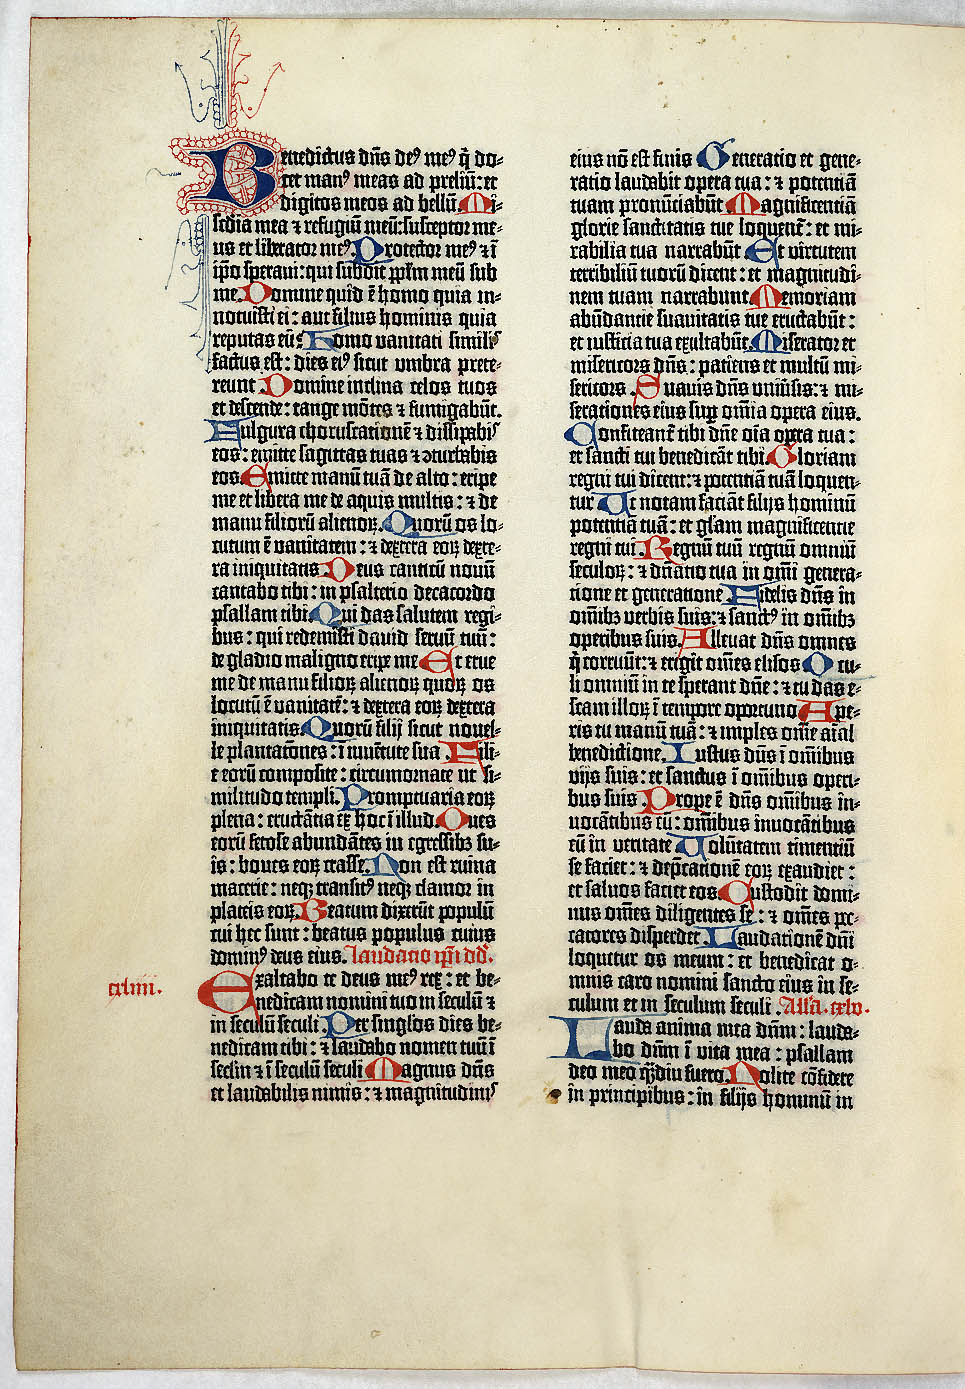 Benedictus dn̄s de᷒ me᷒ q̄ do-
cet man᷒ meas ad preliū: et
digitos meos ad bellū Mi-
sc̄dia mea ⁊ refugiū meū: susceptor me-
us et liberator me᷒ Protector me᷒ ⁊ ī
ip̄o speraui: qui subdit pp̄lm meū sub
me. Domine quid ē homo quia in-
notuisti ei: aut filius hominis quia
reputas eū: Homo vanitati similis
factus est: dies ei᷒ sicut vmbra prete-
reunt Domine inclina celos tuos
et descende: tange mōtes ⁊ fumigabūt.
Fulgura choruscationē ⁊ dissipabis
eos: emitte sagittas tuas ⁊ ꝯturbabis
eos Emitte manū tuā de alto: eripe
me et libera me de aquis multis: ⁊ de
manu filiorū alienoꝝ. Quorū os lo-
cutum ē vanitatem: ⁊ dextera eoꝝ dexte-
ra iniquitatis Deus canticū nouū
cantabo tibi: in psalterio decacordo
psallam tibi. Qui das salutem regi-
bus: qui redemisti dauid seruū tuū:
de gladio maligno eripe me Et erue
me de manu filioꝝ alienoꝝ quoꝝ os
locutū ē vanitatē: ⁊ dextera eoꝝ dextera
iniquitatis Quorū filij sicut nouel-
le plantatōnes: ī iuuētute sua Filī-
e eorū composite: circumornate ut si-
militudo templi. Promptuaria eoꝝ
plena: eructātia ex hoc ī illud. Oues
eorū fetose abundātes in egressibꝫ su-
is: boues eoꝝ crasse. Non est ruina
macerie: neqꝫ transit᷒ neqꝫ clamor in
plateis eoꝝ. Beatum dixerūt populū
cui hec sunt: beatus populus cuius
domin᷒ deus eius. Laudatio ip̄i dd̄.
cxliiii. Exaltabo te deus me᷒ rex: et be-
nedicam nomini tuo in seculū ⁊
in seculū seculi. Per singlos dies be-
nedicam tibi: ⁊ laudabo nomen tuū ī
seclm ⁊ ī seculū seculi Magnus dn̄s
et laudabilis nimis: ⁊ magnitudinis
eius nō est finis Generatio et gene-
ratio laudabit opera tua: ⁊ potentiā
tuam pronūciabūt Magnificentiā
glorie sanctitatis tue loquent᷒: et mi-
rabilia tua narrabūt Et virtutem
terribiliū tuorū dicent: et magnitudi-
nem tuam narrabunt. Memoriam
abūdantie suauitatis tue eructabūt:
et iusticia tua exultabūt Miserator et
misericors dn̄s: patiens et multū mi-
sericors. Suauis dn̄s vniūsis: ⁊ mi-
serationes eius sup̄ om̄ia opera eius.
Confiteant᷒ tibi dn̄e oīa opera tua:
et sancti tui benedicāt tibi. Gloriam
regni tui dicent: ⁊ potentiā tuā loquen-
tur Ut notam faciāt filijs hominū
potentiā tuā: et gl'am magnificentie
regni tui. Regnū tuū regnū omniū
seculoꝝ: ⁊ dn̄atio tua in om̄i genera-
tione et generatione. Fidelis dn̄s in
om̄ibꝫ verbis suis: ⁊ sanct᷒ in om̄ibꝫ
operibus suis. Alleuat dn̄s omnes
q̄ corruūt: ⁊ erigit om̄es elisos Ocu-
li omniū in te sperant dn̄e: ⁊ tu das e-
scam illoꝝ ī tempore oportuno Ape-
ris tu manū tuā: ⁊ imples om̄e aīal
benedictione. Iustus dn̄s ī om̄ibus
vijs suis: et sanctus ī om̄ibus operi-
bus suis. Prope ē dn̄s om̄ibus in-
uocātibus eū: om̄ibus inuocātibus
eū in veritate Uolūtatem timentiū
se faciet: ⁊ dep̄cationē eoꝝ exaudiet:
et saluos faciet eos Custodit domi-
nus om̄es diligentes se: ⁊ om̄es pec-
catores disperdet. Laudationē dn̄i
loquetur os meum: et benedicat o-
mnis caro nomini sancto eius in se-
culum et in seculum seculi. All'a. cxlv.
Lauda anima mea dn̄m: lauda-
bo dn̄m ī vita mea: psallam
deo meo q̄diu fuero. Nolite cōfidere
in principibus: in filijs hominū in